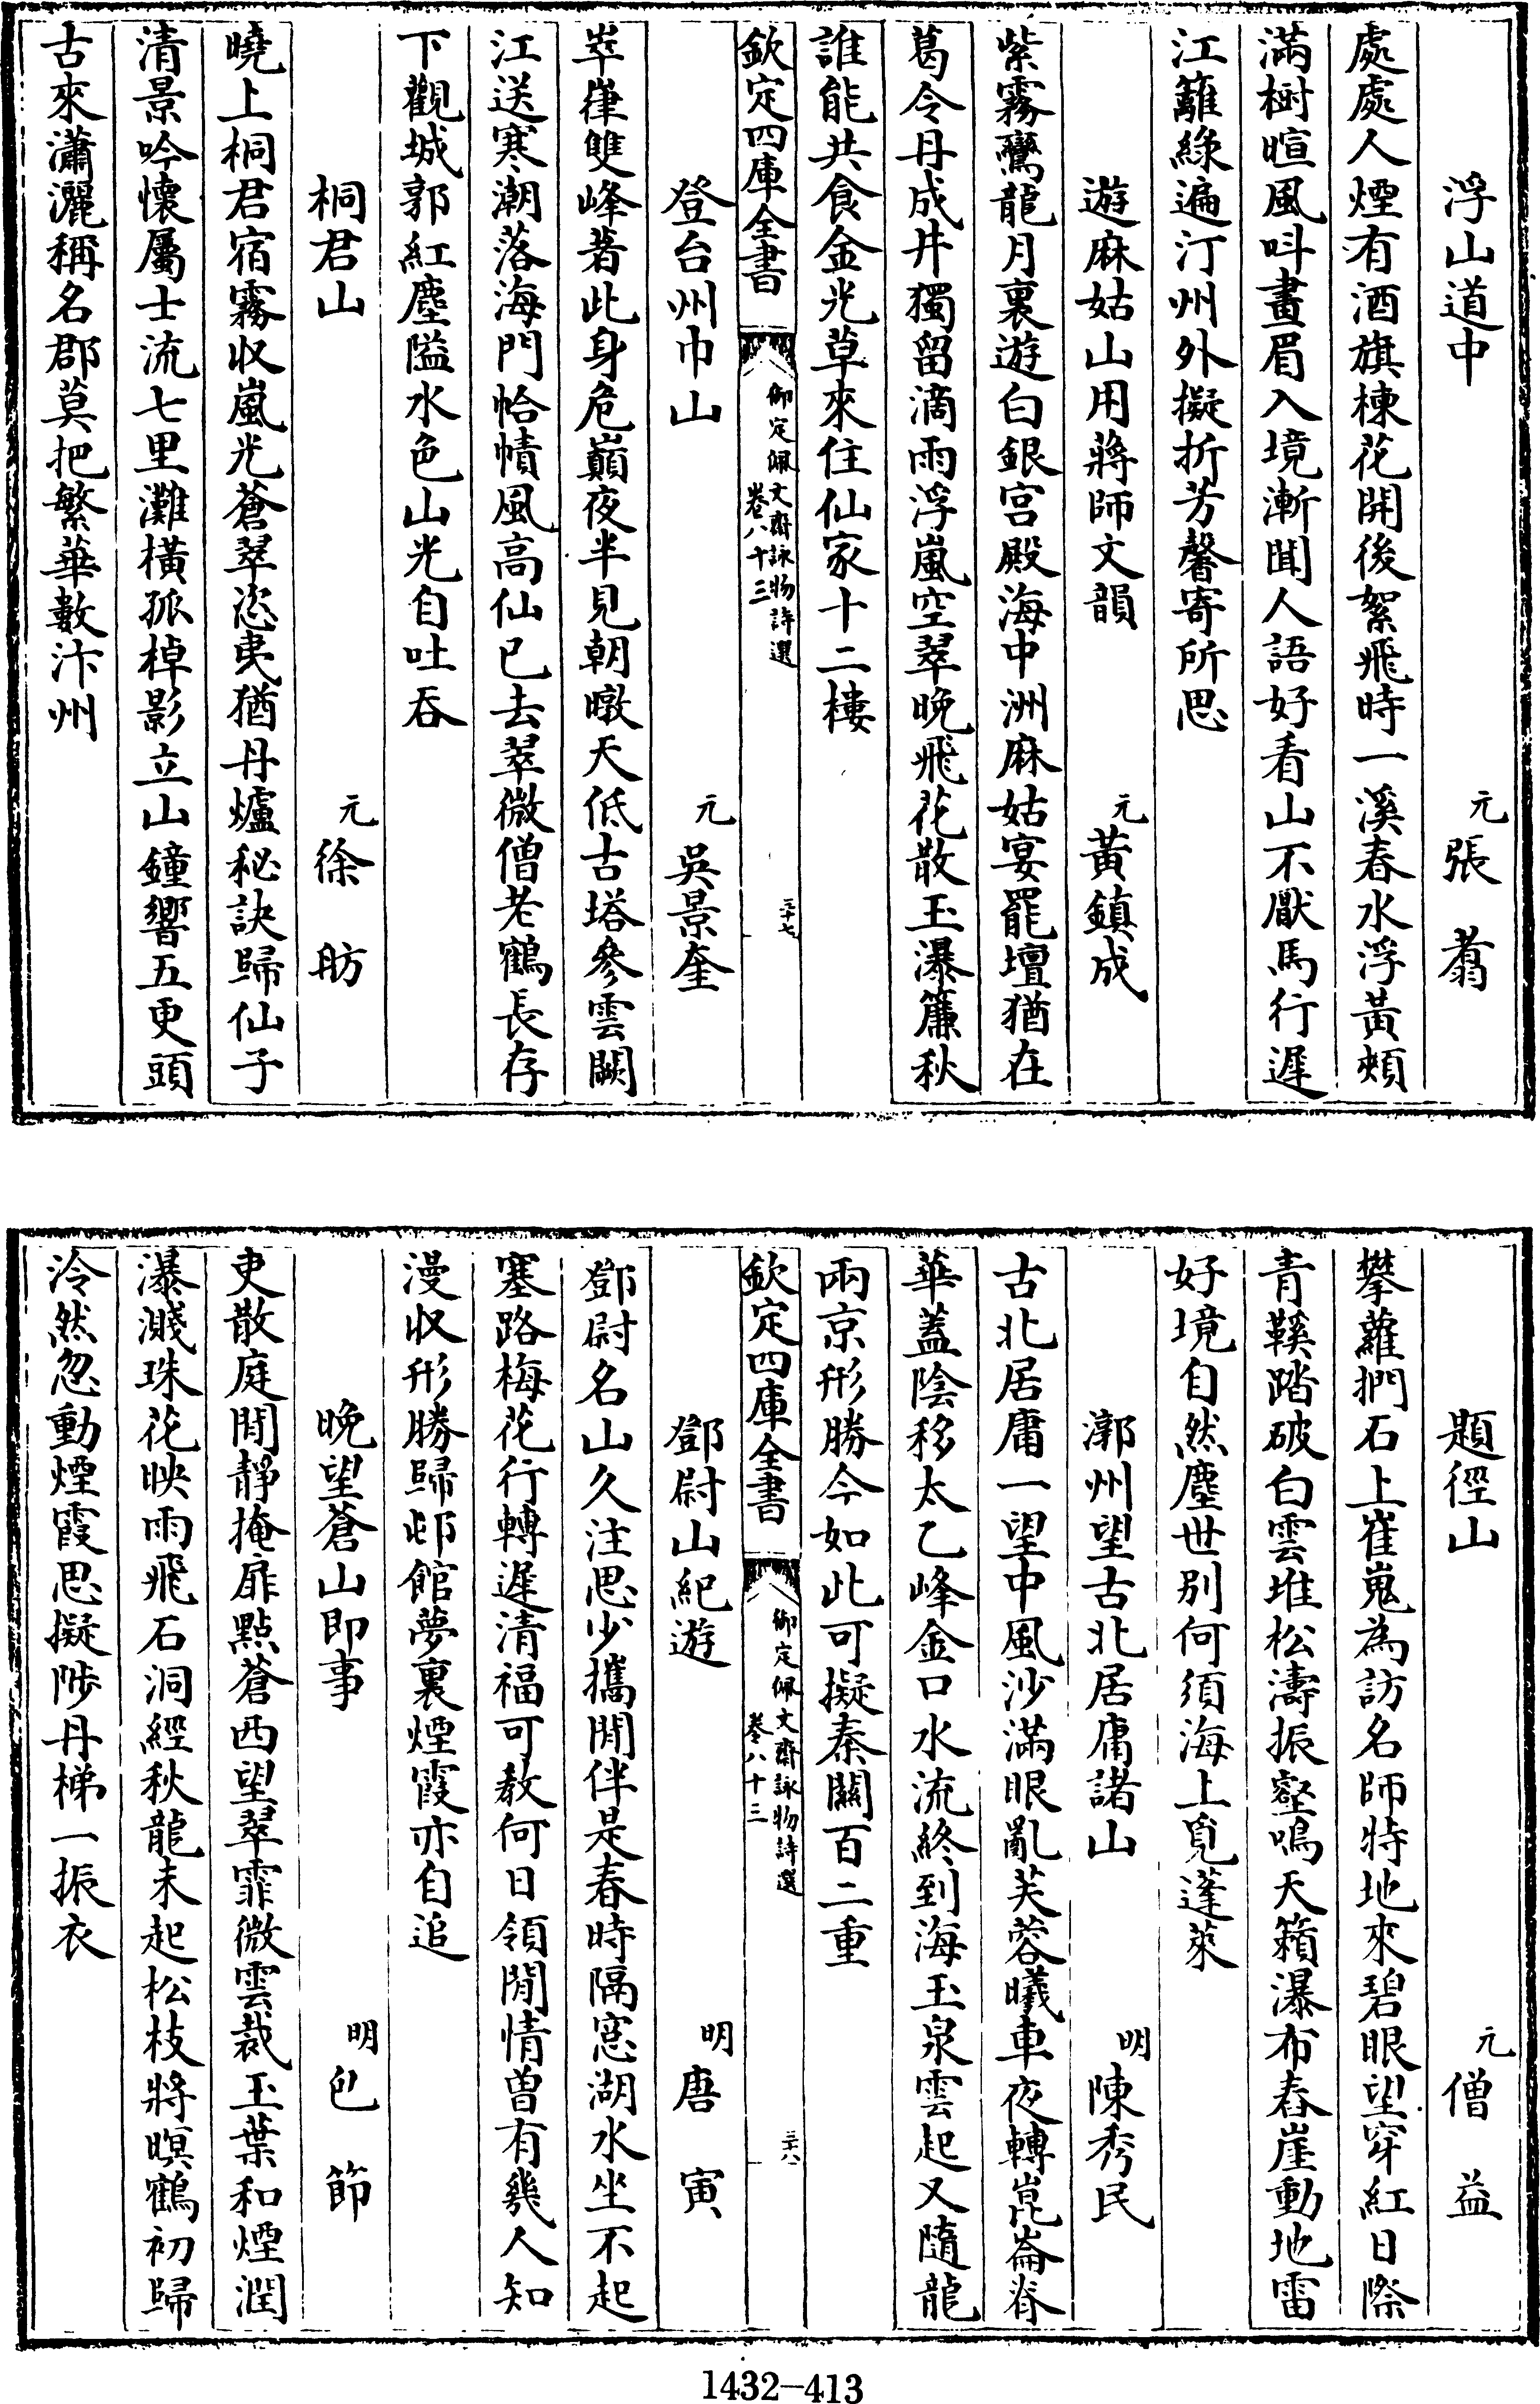 浮山道中　元張翥
處處人煙有酒旗楝花開後絮飛時一溪春水浮黃頰
滿樹暄風呌畫眉入境漸聞人語好看山不厭馬行遲
江籬綠遍汀州外擬折芳馨寄所思
遊麻姑山用蔣師文韻　元黃鎮成
紫霧鸞龍月裏遊白銀宮殿海中洲麻姑宴罷壇猶在
葛令丹成井獨留滴雨浮嵐空翠晚飛花散玉瀑簾秋
誰能共食金光草來住仙家十二樓
欽定四庫全書　御定佩文齋詠物詩選　卷八十三　三十七
登台州巾山　元吳景奎
崒嵂雙峰著此身危巔夜半見朝暾天低古塔參雲闕
江送寒潮落海門恰幘風高仙已去翠微僧老鶴長存
下觀城郭紅塵隘水色山光自吐吞
桐君山　元徐舫
曉上桐君宿霧収嵐光蒼翠恣夷猶丹爐秘訣歸仙子
清景吟懷屬士流七里灘橫孤棹影立山鐘響五更頭
古來瀟灑稱名郡莫把繁華數汴州
題徑山　元僧益
攀蘿捫石上崔嵬為訪名師特地來碧眼望穿紅日際
青鞵踏破白雲堆松濤振壑鳴天籟瀑布舂崖動地雷
好境自然塵世別何須海上覓蓬萊
漷州望古北居庸諸山　明陳秀民
古北居庸一望中風沙滿眼亂芙蓉曦車夜轉崑崙脊
華蓋陰移太乙峰金口水流終到海玉泉雲起又隨龍
兩京形勝今如此可擬秦關百二重
欽定四庫全書　御定佩文齋詠物詩選　卷八十三　三十八
鄧尉山紀遊　明唐寅
鄧尉名山久注思少攜閒伴是春時隔窓湖水坐不起
塞路梅花行轉遲清福可教何日領閒情曽有幾人知
漫収形勝歸邨館夢裏煙霞亦自追
晚望蒼山即事　明包節
吏散庭閒靜掩扉點蒼西望翠霏微雲裁玉葉和煙潤
瀑濺珠花映雨飛石洞經秋龍未起松枝將暝鶴初歸
泠然忽動煙霞思擬陟丹梯一振衣
1432-413